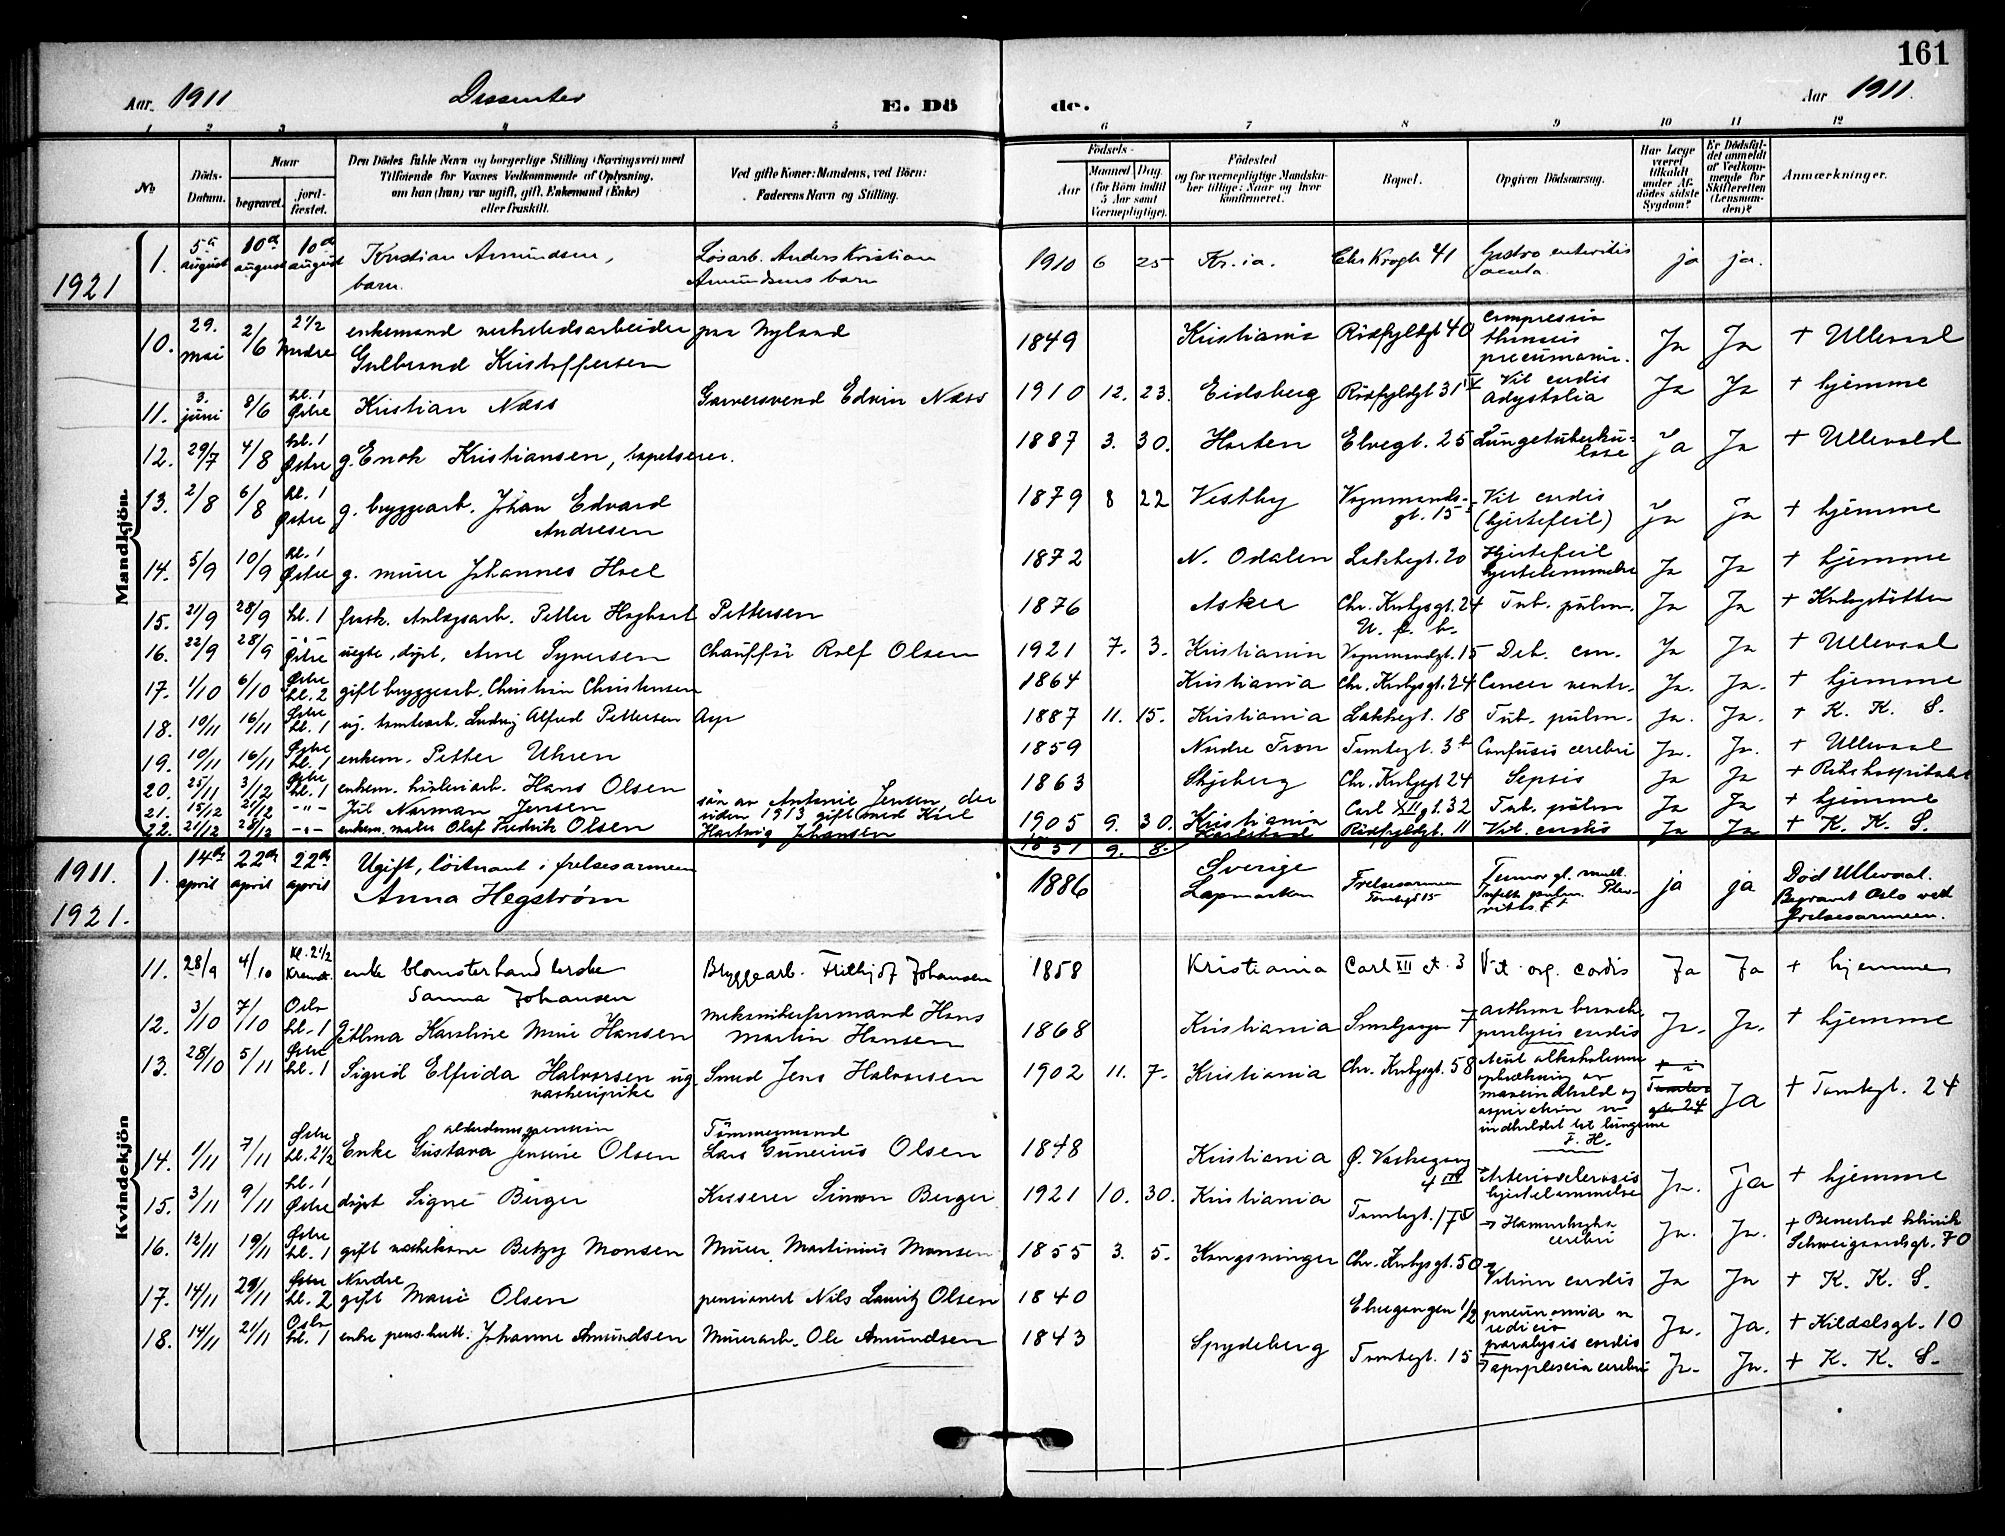 161
Aar. 1911 Dissenter E. Dö de. Aar 1911.
1 2 3 4 5 6 7 8 9 10 11 12
No
Döds-
Datum.
Naar
begravet.
jord-
fæstet.
Den Dödes fulde Navn og borgerlige Stilling (Næringsvei) med
Tilföiende for Voxnes Vedkommende af Oplysning,
om han (hun) var ugift, gift, Enkemand (Enke)
eller fraskilt.
Ved gifte Koner: Mandens, ved Börn:
Faderens Navn og Stilling.
Födsels-
Aar
Maaned Dag
(for Börn indtil
5 Aar samt
Værnepligtige).
Födested
og for værnepligtige Mandska-
ber tillige: Naar og hvor
konfirmeret.
Bopæl.
Opgiven Dödsaarsag.
Har Læge
været
tilkaldt
under Af-
dödes sidste
Sygdom?
Er Dödsfal-
det anmeldt
af Vedkom-
mende for
Skifteretten
(Lensman-
den)?
Anmærkninger.
Mandkjön
1. 5te august 10de august 10de august Kristian Amundsen, barn. Løsarb. Anders Kristian Amundsens barn 1910 6 25 Kr.ia. Chr Krogh 41 Gastro enteritis acuta. ja ja.
1921
10. 29. mai 2/6 2 1/2 Nordre enkemand verkstedsarbeider Gulbrand Kristoffersen paa Nyland 1849 Kristiania Rødfyldgt 40 compressio pneumoni. Ja Ja + Ullevaal
11. 3. juni 8/6 kl. 1 Østre Kristian Næss Garversvend Edvin Næss 1910 12. 23. Eidsberg Rødfyldgt 31 Vit cordis Adystolia Ja Ja + hjemme
12. 29/7 4/8 kl. 1 Østre g. Enok Kristiansen, tapetserer. 1887 3. 30. Horten Elvegt. 25 Lungetuberku-lose Ja Ja + Ullevaal
13. 2/8 6/8 kl. 1 Østre g. bryggearb. Johan Edvard Andresen 1879 8 22 Vestby Vognmands-gt. 15 Vit cordis (hjertefeil) Ja Ja + hjemme
14. 5/9 10/9 kl. 1 Østre g. murer Johannes Hoel 1872 N. Odalen Lakkegt. 20 Hjertefeil hjertelammelse Ja Ja + hjemme
15. 21/9 28/9 kl. 1 frask. Anlægsarb. Petter Hagbart Pettersen 1876 Asker Chr. Krohgsgt. 24 U. f. b. Tub. pulm. Ja Ja + Krohgstøtten
16. 22/9 28/9 - " - Østre uegte, døpt, Arne Syversen Chauffør Rolf Olsen 1921 7. 3. Kristiania Vognmandgt. 15 Deb. con. Ja Ja + Ullevaal
17. 1/10 6/10 Østre kl. 2 gift bryggearb. Christian Christensen 1864 Kristiania Chr. Krohgsgt. 24 Cancer ventr. Ja. Ja. + hjemme
18. 10/11 16/11 Østre kl. 1 ug. tomtearb. Ludvig Alfred Pettersen 1887 11. 15. Kristiania Lakkegt. 18 Tub. pulm. Ja. Ja. + K. K. S.
19. 10/11 16/11 Østre kl. 1 enkem. Petter Uhren 1859 Nordre Tron Tomtegt. 3b Confusio cerebri Ja. Ja. + Ullevaal
20. 25/11 3/12 Østre kl. 1 enkem. Hans Olsen 1863 Skjeberg Chr. Krohgt 24 Sepsis Ja Ja + Rikshospitalet
21. 15/12 21/12 - " - Jul Norman Jensen søn av Antonie Jensen, der siden 1913 gift med Karl Hartvig Johansen 1905 9. 30. Kristiania Carl XII gt. 32 Tub. pulm Ja Ja + hjemme
22. 21/12 28/12 - " - enkem. maler Olaf Fredrik Olsen 1851 9. 8. Rødfyldgt. 11 Vit. cordis Ja Ja + K. K. S.
Kvindekjön
1911. 1. 14de april 22de april 22de april Ugift, løitnant i frelsesarmeen Anna Hegström 1886 Sverige Lapmarken Frelsesarmeen Tomtegt 15 Tumor gl. ja ja Død Ullevaal. Begravet Oslo ved frelsesarmeen.
1921.
11. 28/9 4/10 Kl. 2 1/2 Kremat. enke blomsterhandlerske Sanna Johansen Bryggearb. Frithjof Johansen 1858 Kristiania Carl XII gt. 3 Vit. org. cordis Ja Ja + hjemme
12. 3/10 7/10 Oslo kl. 1 Thma Karoline Marie Hansen mekanikerformand Hans Martin Hansen 1868 Kristiania Smalgangen 7 asthma bronch. paralysis cordis Ja. Ja. + hjemme
13. 28/10 5/11 Østre kl. 1 Sigrid Elfrida Halvorsen ug. vaskeripike Smed Jens Halvorsen 1902 11. 7. Kristiania Chr. Krohgsgt. 58 Acut alkoholisme opkastning av maveindhold og aspiration av indholdet til lungene F. H. + i Tomtegt. 24 Ja + Tomtegt. 24
14. 1/11 7/11 Østre kl. 2 1/2 alderdomspension Enke Gustava Jensine Olsen Tømmermand Lars Gunerius Olsen 1848 Kristiania Ø. Vaskegang 4 III Arteriosclerosis hjertelammelse Ja. Ja + hjemme
15. 3/11 9/11 kl. 1 Østre døpt Signe Berger Kasserer Simon Berger 1921 10. 30. Kristiania Tomtegt. 17 Hæmorrhagia cerebri Ja. Ja. + Benestad klinik Schweigaardsgt. 70
16. 12/11 19/11 Østre kl. 1 gift vaskekone Betzy Monsen Murer Martinius Monsen 1855 3. 5. Kongsvinger Chr. Krohgsgt. 50 Vitium cordis Ja Ja + K. K. S.
17. 14/11 29/11 Østre kl. 2 Nordre gift Marie Olsen pensionert Nils Lauritz Olsen 1840 Elvegangen 1/2 pneunomia paralysis cordis Ja. Ja. + Kildalsgt. 10
18. 14/11 21/11 Oslo kl. 1 enke Johanne Amundsen Murerarb. Ole Amundsen 1843 Spydeberg Tomtegt. 15 apoplexia cerebri Ja. Ja. + K. K. S.